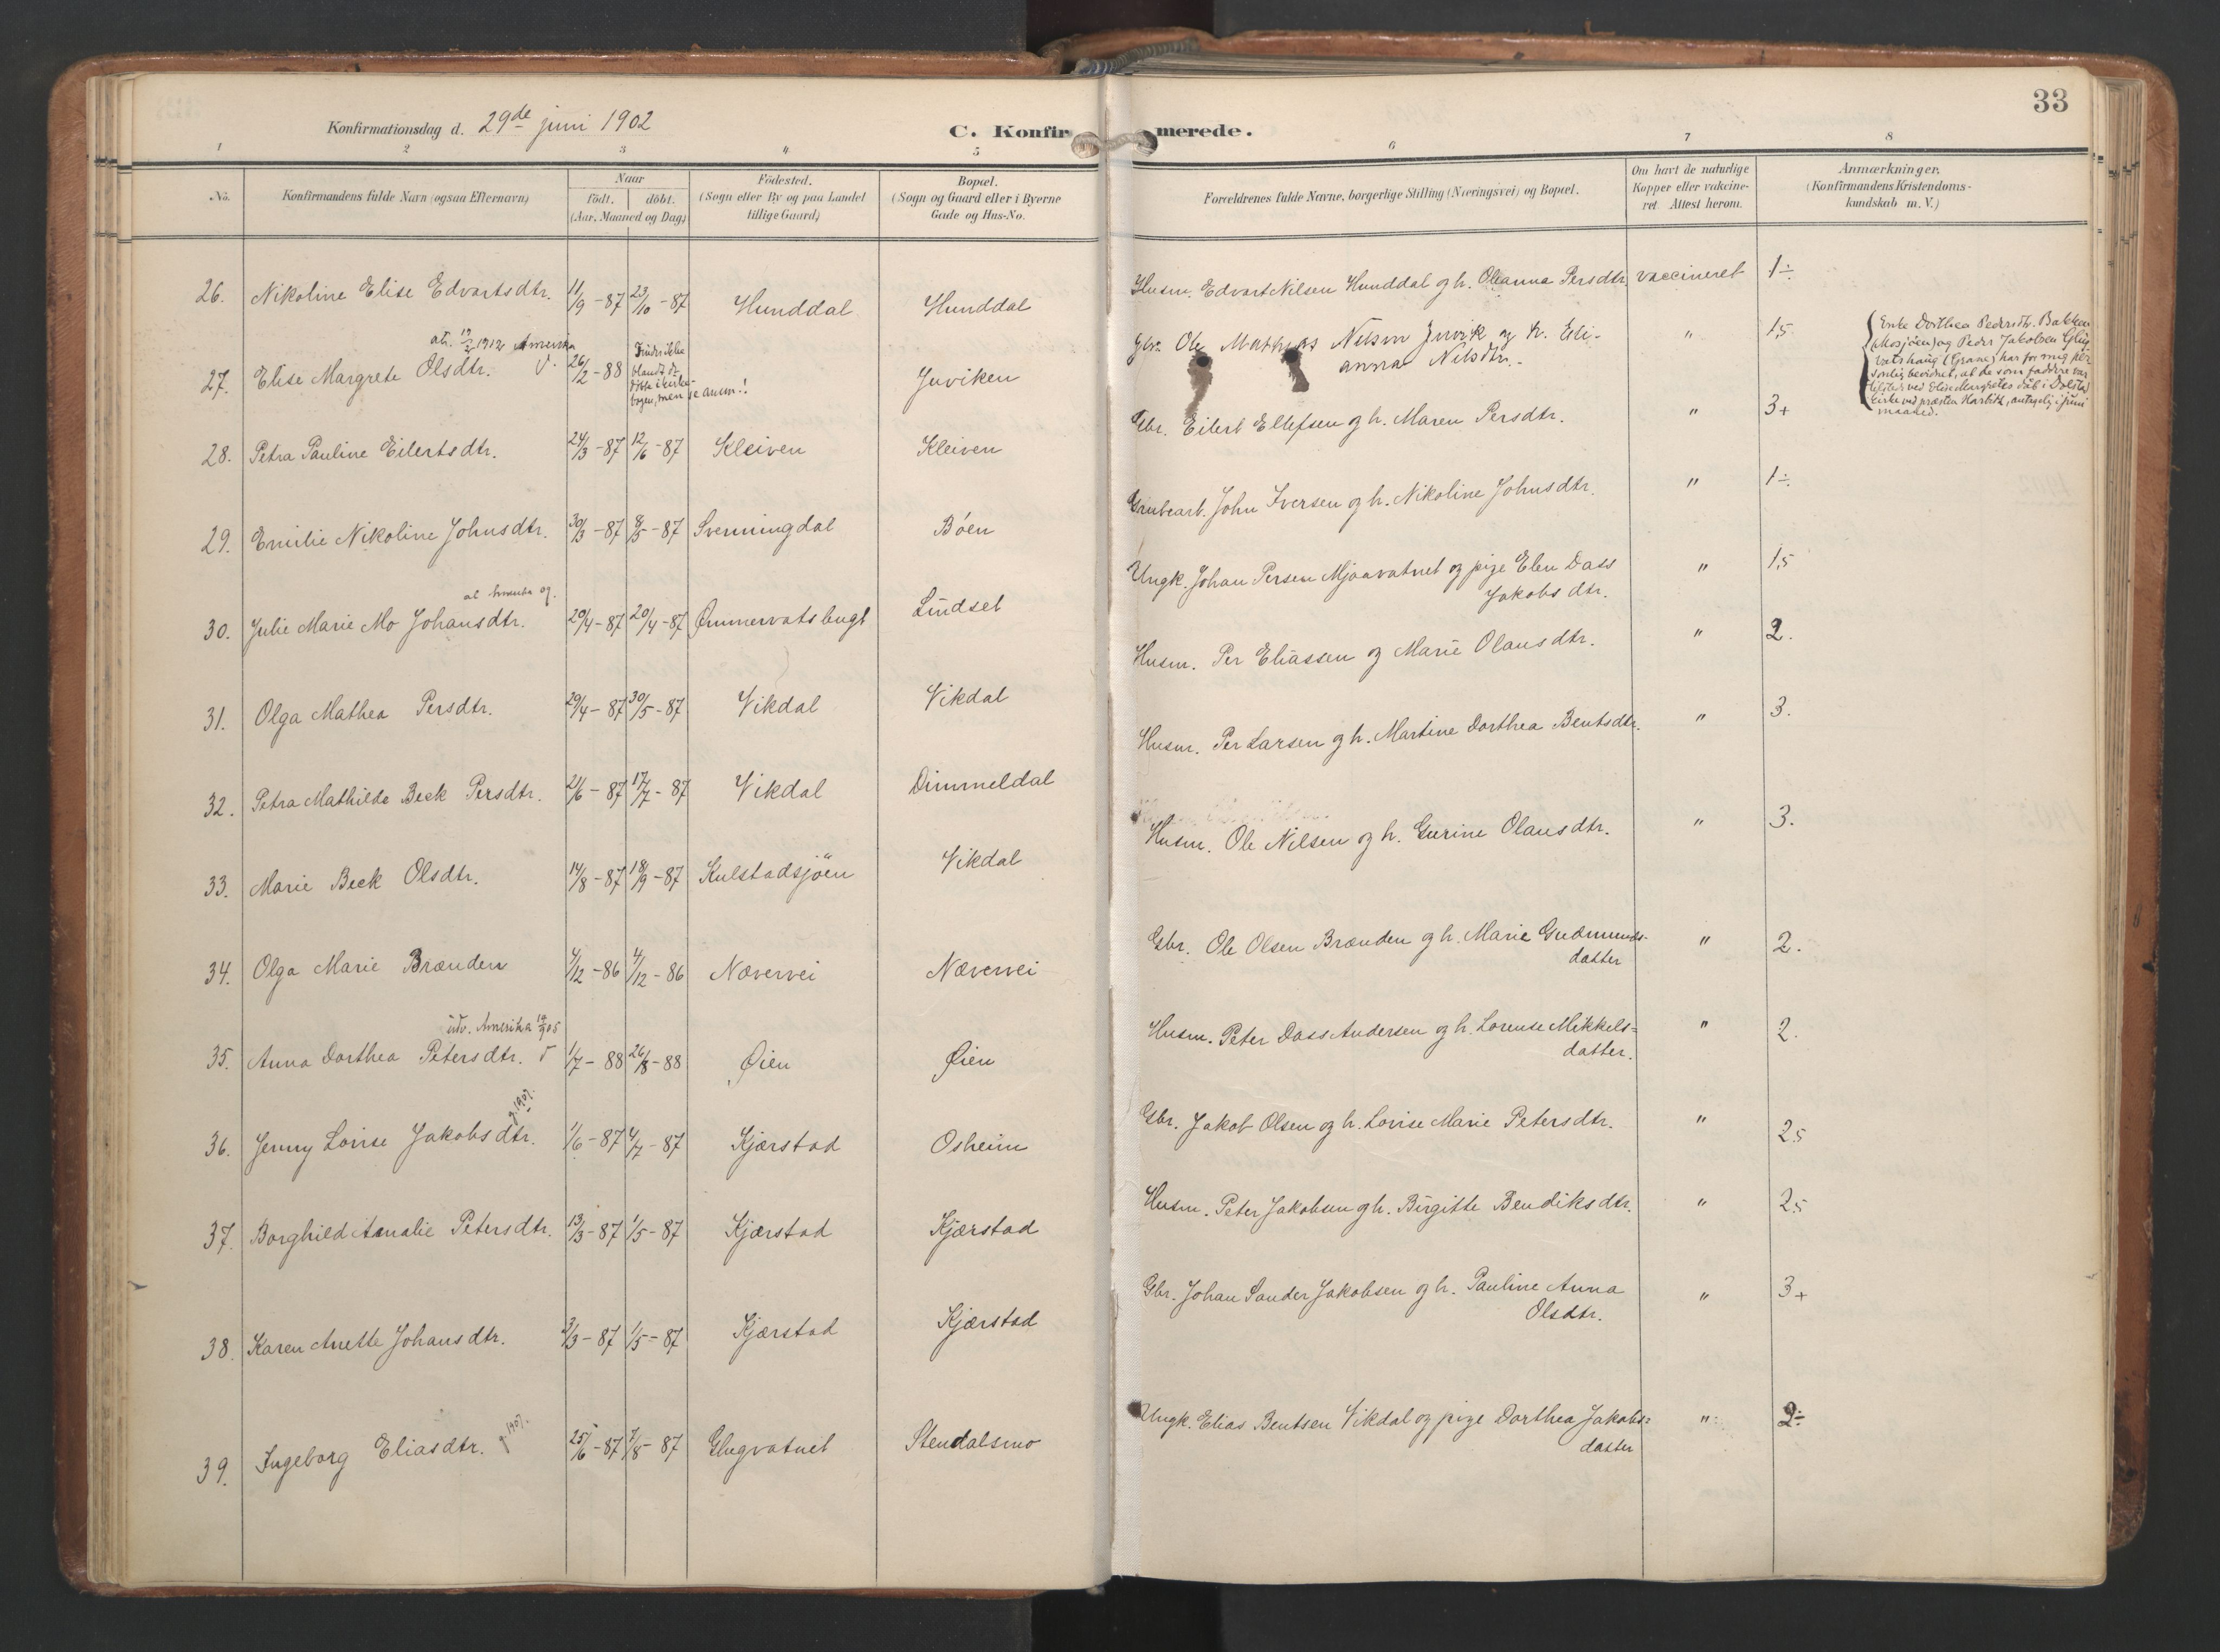 33
Konfirmationsdag d. 29de juni 1902 C. Konfirmerede.
1 2 3 4 5 6 7 8
No. Konfirmandens fulde Navn (ogsaa Efternavn) Naar født. døbt. (Aar, Maaned og Dag) Fødested. (Sogn eller By og paa Landet tillige Gaard) Bopæl. (Sogn og Gaard eller i Byerne Gade og Hus-No. Forældrenes fulde Navne, borgerlige Stilling (Næringsvei) og Bopæl. Om havt de naturlige Kopper eller vakcineret. Attest herom. Anmærkninger. (Konfirmandens Kristendomskundskab m. V.)
26. Nikoline Elise Edvartsdtr. 11/9-87 23/10-87 Hunddal Hunddal Husm. Edvart Nilsen Hunddal og h. Oleanna Persdtr. vaccineret 1÷
1912 Amerika
27. Elise Margrete Olsdtr. 26/2-88 Findes ikke blandt de døbte i kirkebogen, men se anm.! Juviken Gbr. Ole Mathias Nilsen Juvik og h. Elianna Nilsdtr. " 1,5
Enke Dorthea Pedersdtr. Bakken
(Mosjøen) og Peder Jakobsen Glugvatshaug (Grane) har for mig personlig bevidnet, at de som faddere var tilstede ved Elise Margretes dåb i Dolstad kirke ved præsten Harbitz, antagelig i juni maaned.
28. Petra Pauline Eilertsdtr. 24/3-87 12/6-87 Kleiven Kleiven Gbr. Eilert Ellefsen og h. Maren Persdtr. " 3+
29. Emilie Nikoline Johnsdtr. 30/3-87 8/5-87 Svenningdal Bøen Grubearb. John Iversen og h. Nikoline Johnsdtr. " 1÷
30. Julie Marie Mo Johansdtr. 20/4-87 20/4-87 Ømmervatsbugt Lindset Ungk. Johan Persen Mjaavatnet og pige Elen Dass
Jakobsdtr. " 1,5
31. Olga Mathea Persdtr. 29/4-87 30/5-87 Vikdal Vikdal Husm. Per Eliassen og Marie Olausdtr. " 2.
32. Petra Mathilde Beck Persdtr. 21/6-87 17/7-87 Vikdal Dimmeldal Husm. Per Larsen og h. Martine Dorthea Bentsdtr. " 3.
33. Marie Beck Olsdtr. 14/8-87 18/9-87 Kulstadsjøen Vikdal Husm. Ole Nilsen og h. Gurine Olausdtr. " 3.
34. Olga Marie Brænden 4/12-86 4/12-86 Nævervei Nævervei Gbr. Ole Olsen Brænden og h. Marie Gudmunds-
datter " 2.
udv. Amerika
35. Anna Dorthea Petersdtr. 1/7-88 26/8-88 Øien Øien Husm. Peter Dass Andersen og h. Lorense Mikkels=
datter. " 2.
g. 1907.
36. Jenny Lovise Jakobsdtr. 1/6-87 4/7-87 Kjærstad Osheim Gbr. Jakob Olsen og h. Lovise Marie Petersdtr. " 2,5
37. Borghild Amalie Petersdtr. 13/3-87 1/5-87 Kjærstad Kjærstad Husm. Peter Jakobsen og h. Birgitte Bendiksdtr. " 2,5
38. Karen Anette Johansdtr. 2/3-87 1/5-87 Kjærstad Kjærstad Gbr. Johan Sander Jakobsen og h. Pauline Anna
Olsdtr. " 3+
39. Ingeborg Eliasdtr. g. 1907. 25/6-87 7/8-87 Glugvatnet Stendalsmo Ungk. Elias Bentsen Vikdal og pige Dorthea Jakobs=
datter " 2÷